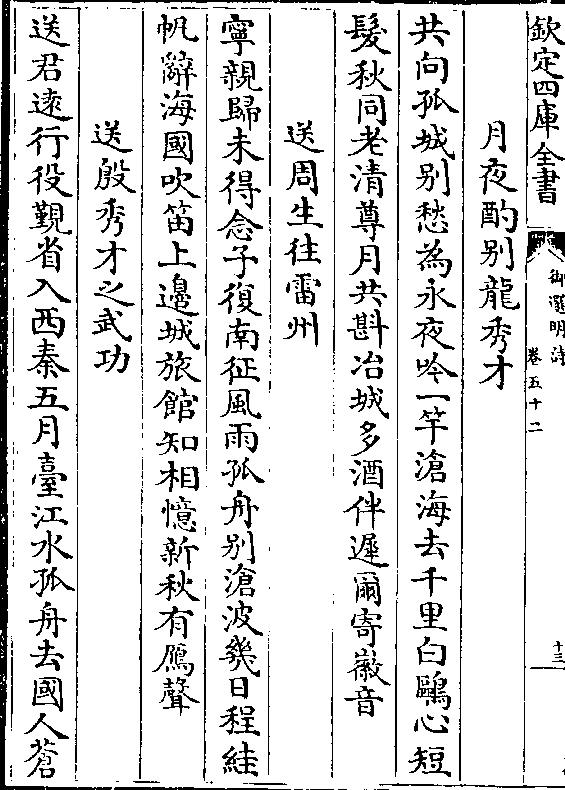 欽定四庫全書
御選明詩
卷五十二
十三
月夜酌别龍秀才
共向孤城别愁為永夜吟一竿滄海去千里白鷗心短
髮秋同老清尊月共斟冶城多酒伴遲爾寄徽音
送周生往雷州
寧親歸未得念子復南征風雨孤舟别滄波幾日程絓
帆辭海國吹笛上邊城旅館知相憶新秋有鴈聲
送殷秀才之武功
送君遠行役覲省入西秦五月臺江水孤舟去國人蒼